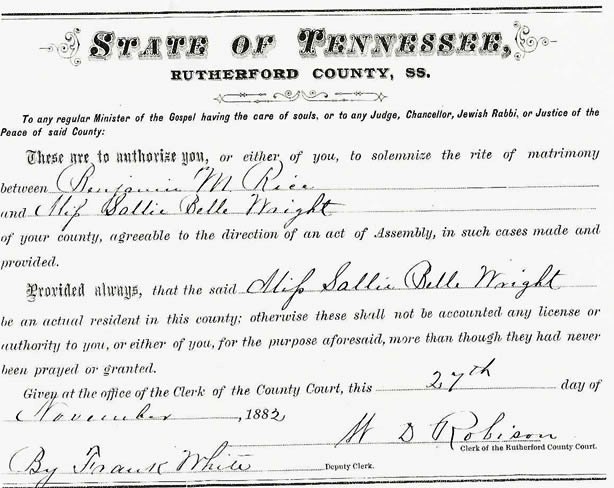 STATE OF TENNESSEE,
RUTHERFORD COUNTY, SS.
To any regular Minister of the Gospel having the care of souls, or to any Judge, Chancellor, Jewish Rabbi, or Justice of the
Peace of said County:
These are to authorize you, or either of you, to solemnize the rite of matrimony
between Benjamin M. Rice
and Miss Sallie Belle Wright
of your county, agreeable to the direction of an act of Assembly, in such cases made and
provided.
Provided always, that the said Miss Sallie Belle Wright
be an actual resident in this county; otherwise these shall not be accounted any license or
authority to you, or either of you, for the purpose aforesaid, more than though they had never
been prayed or granted.
Given at the office of the Clerk of the County Court, this 27th day of
November, 1882
W D Robison
Clerk of the Rutherford County Court.
By Frank White Deputy Clerk.